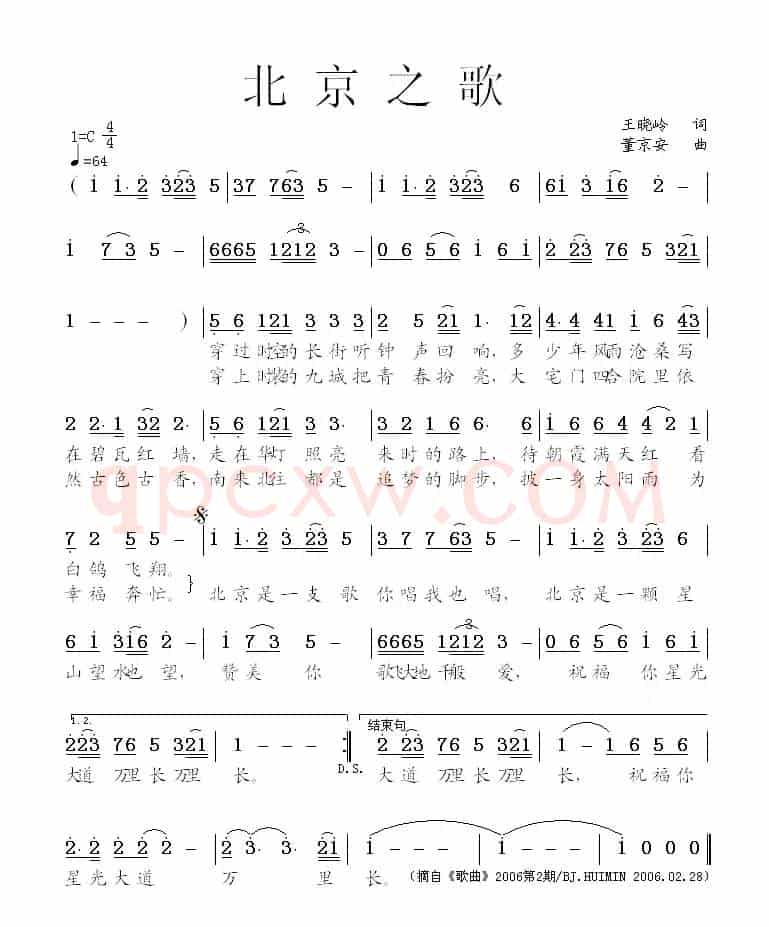 北京之歌
王晓岭 词
1=C 4/4
董京安 曲
♩=64
( i i·2 323 5 | 37 763 5 - | i i·2 323 6 | 6i 3 i6 2 - |
i 7 3 5 - | 6665 1212 3 - | 0 6 5 6 i 6 i | 2 23 76 5 321 |
1 - - - ) | 5 6 121 3 3 3 | 2 5 2 1· 12 | 4· 4 41 1 6 43 |
穿过时空的长街听钟声回响,多少年风雨沧桑写
穿上时装的九城把青春扮亮,大宅门四合院里依
2 2·1 32 2· | 5 6 121 3 3· | 3 2 1 6 6 - | 1 6 6 4 4 2 1 |
在碧瓦红墙,走在华灯照亮来时的路上,待朝霞满天红看
然古色古香,南来北往都是追梦的脚步,披一身太阳雨为
7 2 5 5 - | i i·2 323 5 | 3 7 7 63 5 | i i·2 3 23 6 |
白鸽飞翔。
幸福奔忙。}北京是一支歌你唱我也唱,北京是一颗星
6 i 3i6 2 - | i 7 3 5 - | 6665 1212 3 - | 0 6 5 6 i 6 i |
山望水也望,赞美你歌飞大地千般爱,祝福你星光
1.2. 结束句
2 23 76 5 321 | 1 - - - :| 2 23 76 5 321 | 1 - 1 6 5 6 |
D.S.
大道万里长万里长。大道万里长万里长,祝福你
2· 2 2 2 | 2 3· 3· 2i | i - - - | i - - - | i 0 0 0 ||
星光大道万里长。(摘自《歌曲》2006第2期/BJ.HUIMIN 2006.02.28)
qpcxw.com